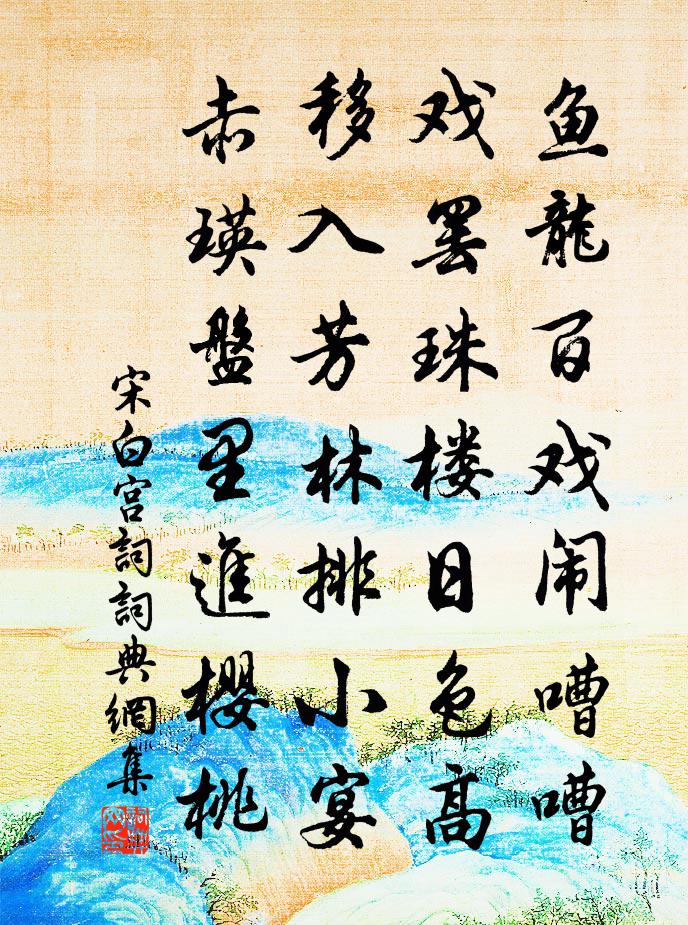 鱼龍百戏闹嘈嘈
戏罢珠楼日色高
移入芳林排小宴
赤瑛盤里進櫻桃
宋白宫詞詞典網集